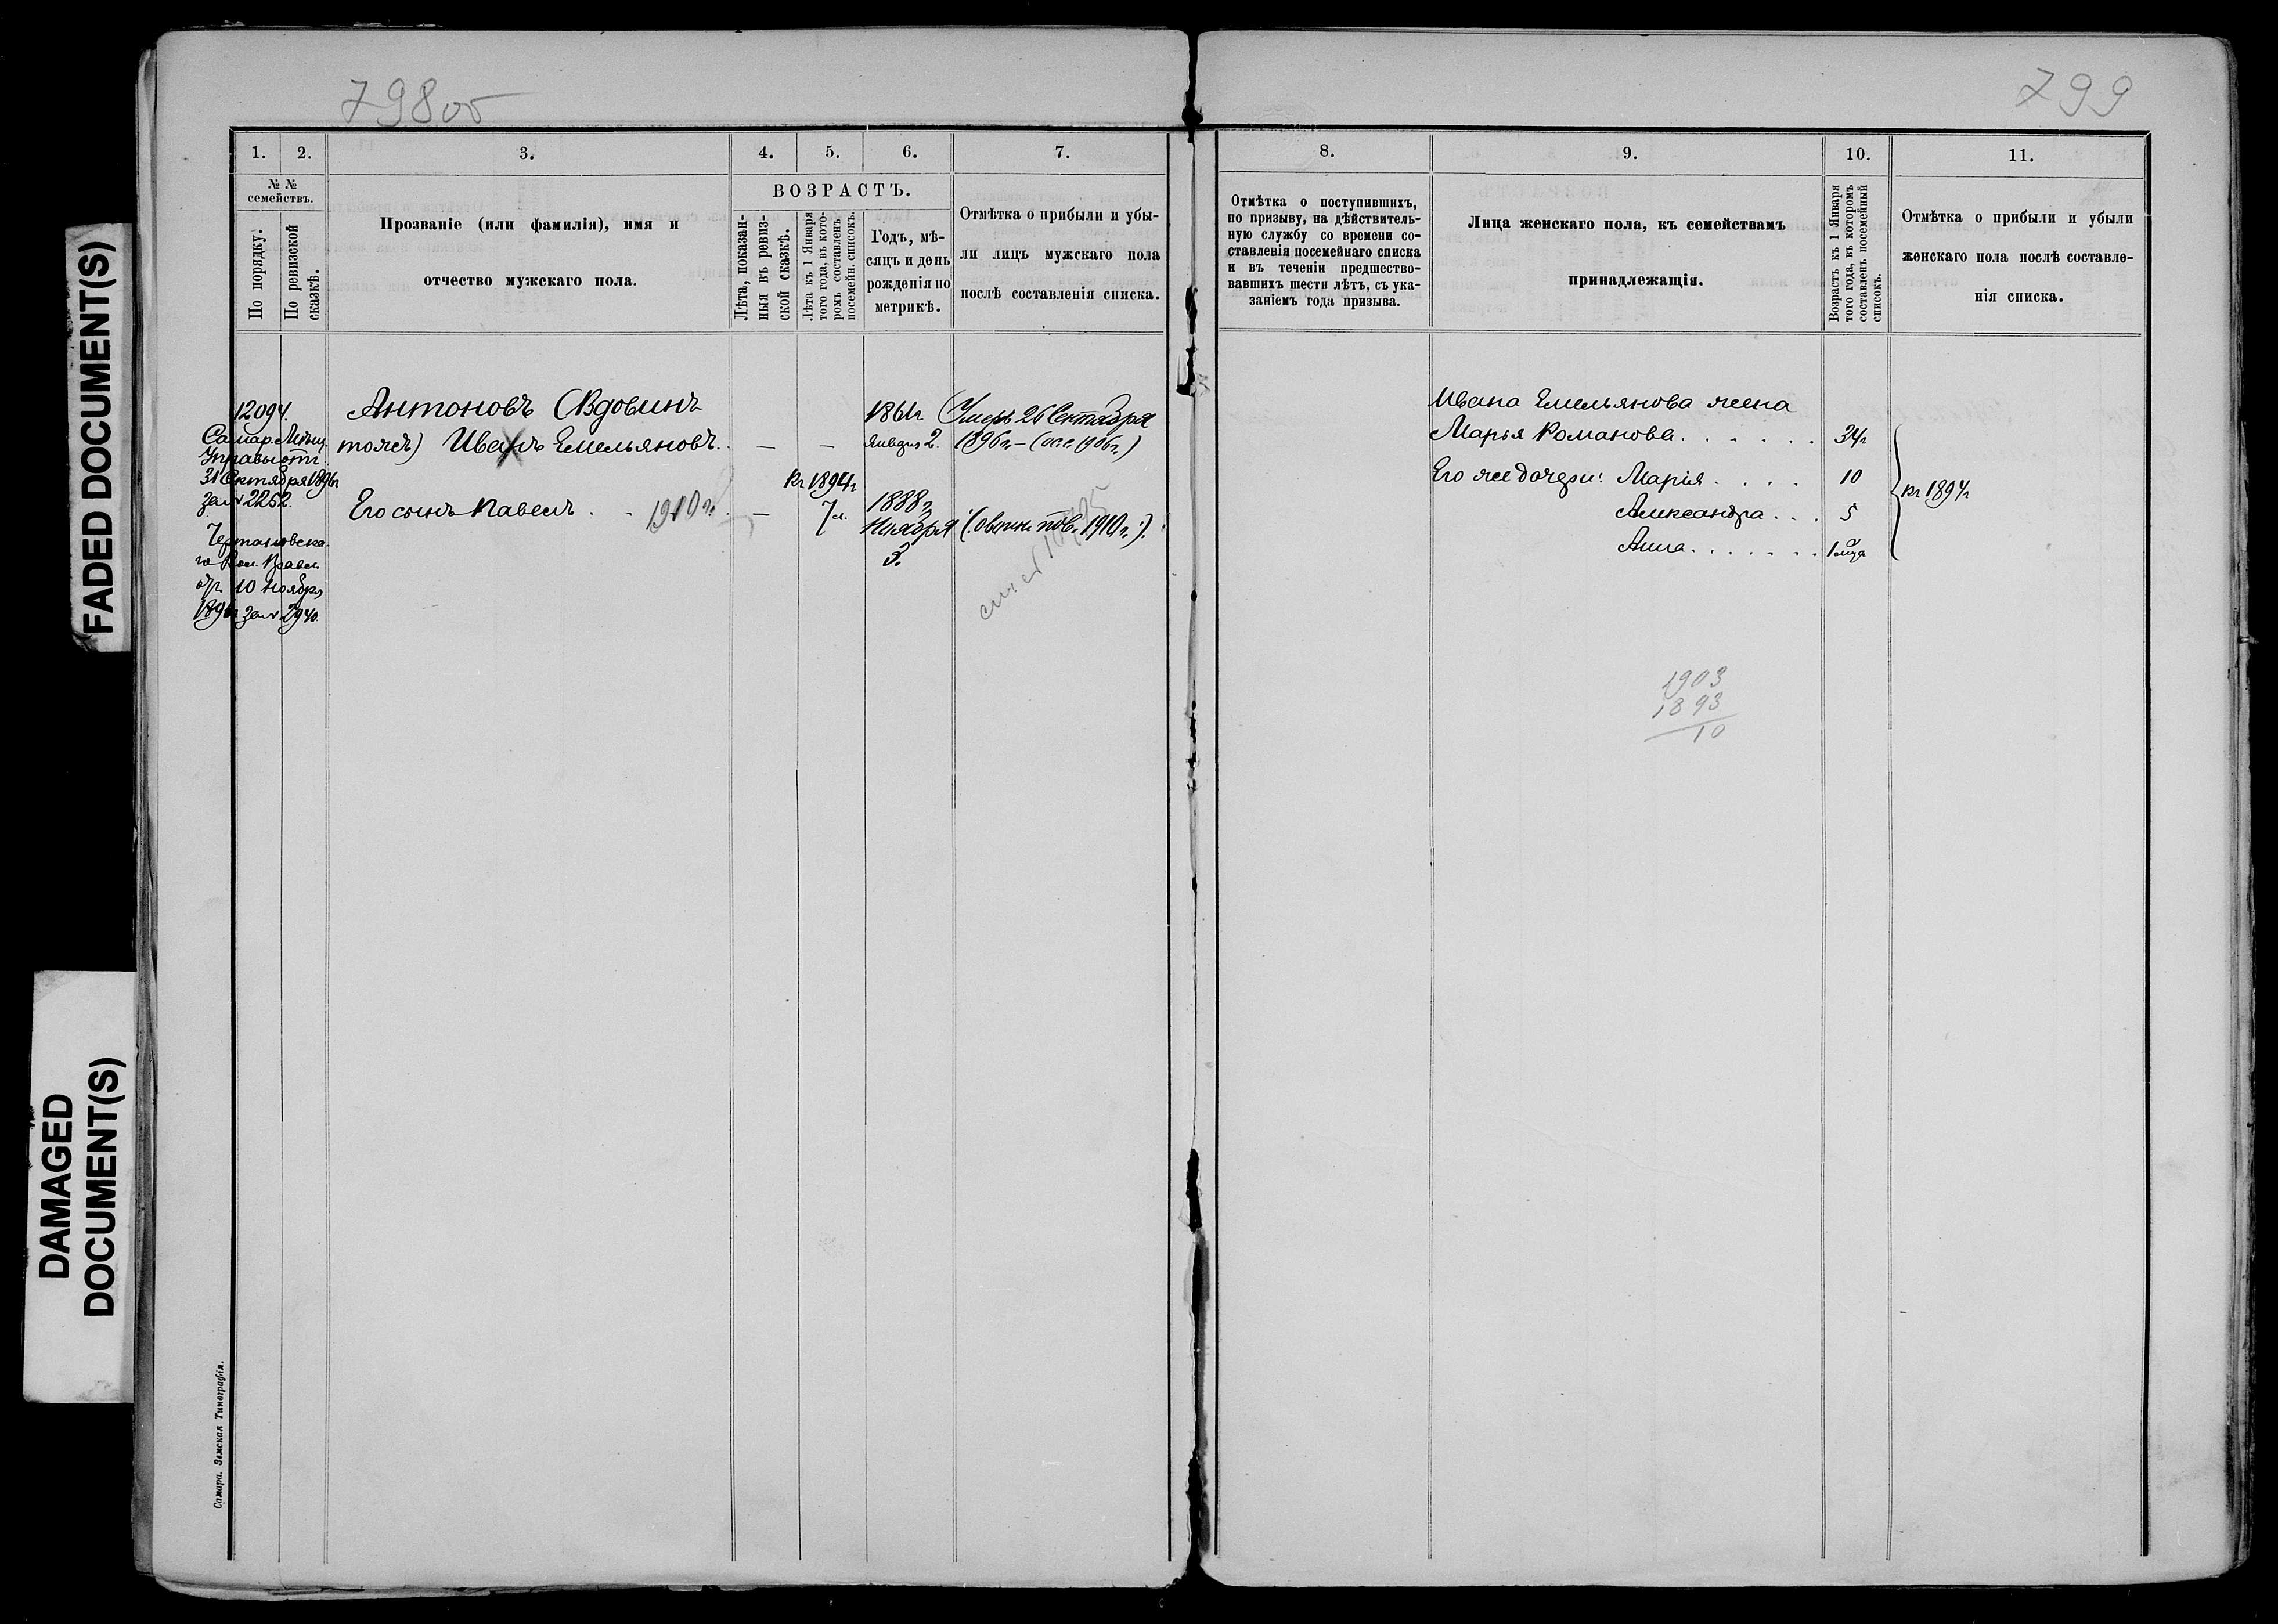 FADED DOCUMENT(S)
DAMAGED
DOCUMENT(S)
798об
1.
2.
3.
4.
5.
6.
7.
№ №
семействъ.
По порядку.
По ревизской
сказкѣ.
Прозваніе (или фамилія), имя и
отчество мужскаго пола.
ВОЗРАСТЪ.
Лѣта, показан-
ныя въ ревиз-
ской сказкѣ.
Лѣта къ 1 Января
того года, въ кото-
ромъ составленъ
посемейн. списокъ.
Годъ, мѣ-
сяцъ и день
рожденія по
метрикѣ.
Отмѣтка о прибыли и убы-
ли лицъ мужскаго пола
послѣ составленія списка.
12094.
Самар. Мѣщ.
Управы отъ
31 Октября 1896г
за № 2252.
Чертановска-
го Вол. Правл.
отъ 10 Ноября
1896г за № 2940.
Антоновъ (Вдовинъ
тожъ) Иванъ Емельяновъ. — —
1861г
Января 2.
Умеръ 26 Сентября
1896г – (исс 1906г.)
Его сынъ Павелъ . . 1910 г. —
къ 1894г
7 л.
1888г
Ноября
3.
(:о воин. пов. 1910г.:).
Самара. Земская Типографія.
799
8.
9.
10.
11.
Отмѣтка о поступившихъ,
по призыву, на дѣйствитель-
ную службу со времени со-
ставленія посемейнаго списка
и въ теченіи предшество-
вавшихъ шести лѣтъ, съ ука-
заніемъ года призыва.
Лица женскаго пола, къ семействамъ
принадлежащія.
Возрастъ къ 1 Января
того года, въ которомъ
составленъ посемейный
списокъ.
Отмѣтка о прибыли и убыли
женскаго пола послѣ составле-
нія списка.
Ивана Емельянова жена
Марья Романова . . . . . . 34г
Его же дочери: Марія . . . . 10
Александра . . . 5
Анна . . . . . . . 1 года
къ 1894г
1903
1893
10